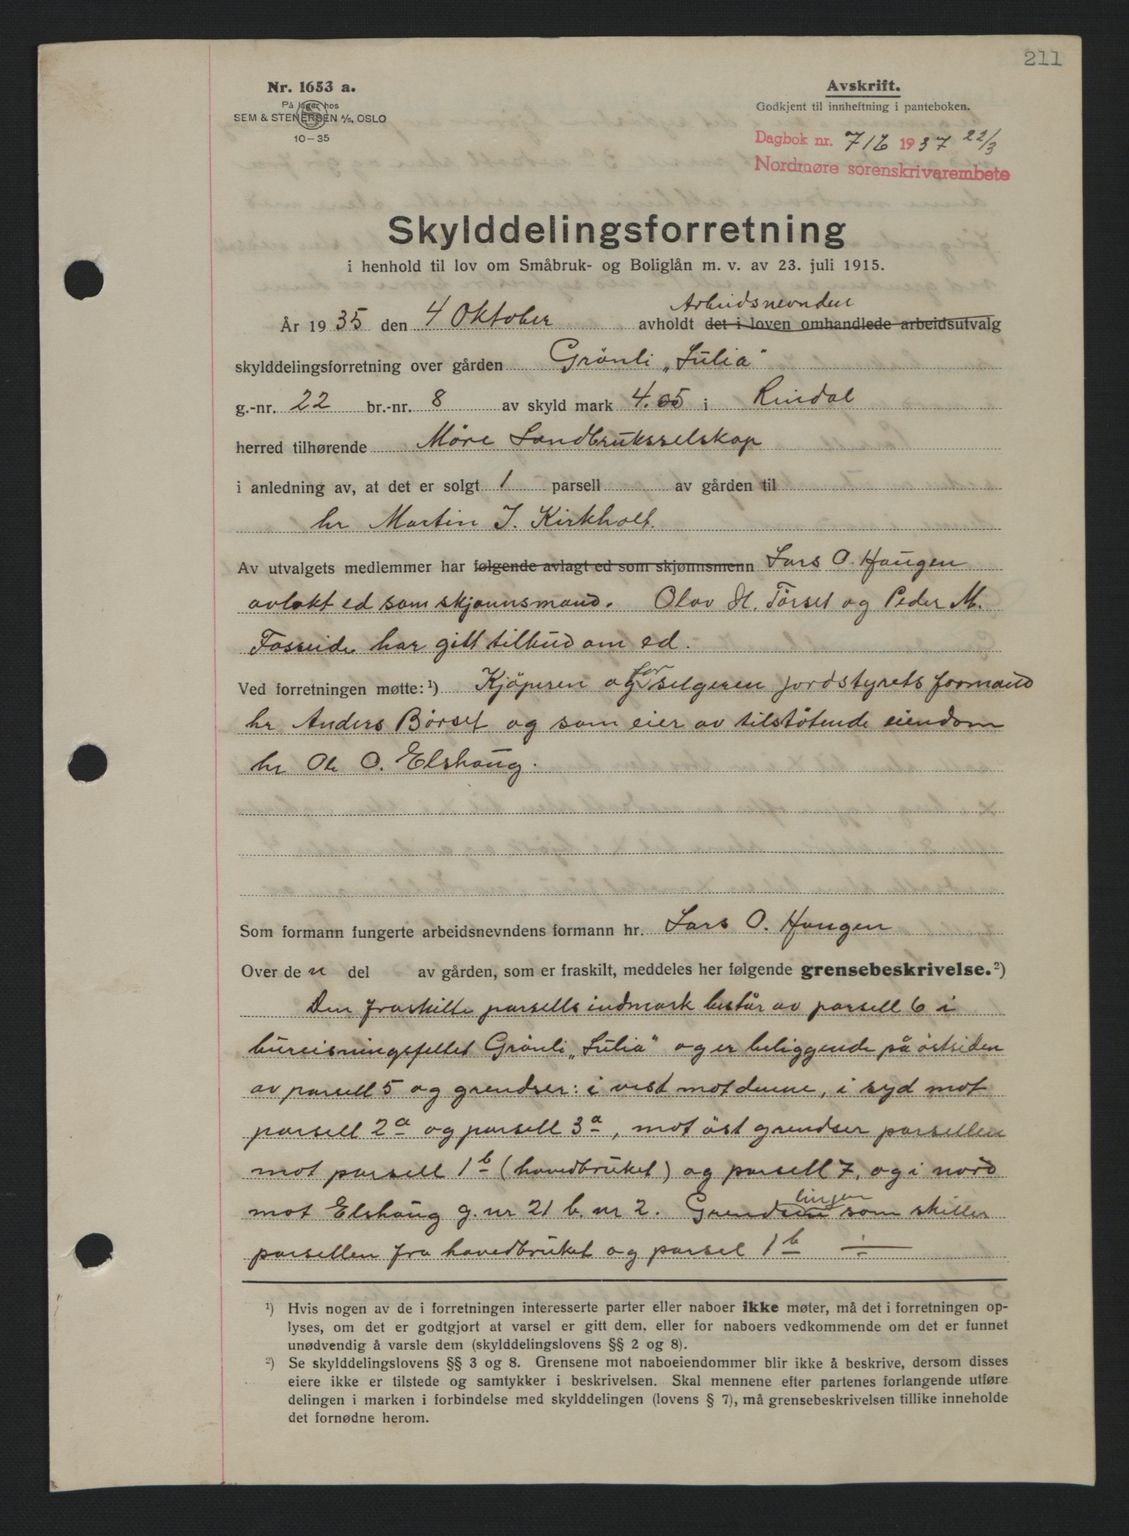 211
Nr. 1653 a.
På lager hos
SEM & STENERSEN A/S, OSLO
10-35
Avskrift.
Godkjent til innheftning i panteboken.
Dagbok nr. 716 1937 22/3
Nordmøre sorenskrivarembete
Skylddelingsforretning
i henhold til lov om Småbruk- og Boliglån m. v. av 23. juli 1915.
Arbeidsnevnden
År 1935 den 4 Oktober avholdt det i loven omhandlede arbeidsutvalg
skylddelingsforretning over gården Grönli „Lülia"
g.-nr. 22 br.-nr. 8 av skyld mark 4.05 i Rindal
herred tilhørende Møre Landbruksselskap
i anledning av, at det er solgt 1 parsell av gården til
hr Martin J. Kirkholt.
Av utvalgets medlemmer har følgende avlagt ed som skjønnsmenn Lars O. Haugen
avlakt ed som skjønnsmand. Olav H. Törset og Peder M.
Fosseide har gitt tilbud om ed.
Ved forretningen møtte: ¹) Kjöperen og for selgeren jordstyrets formand
hr Anders Börset og som eier av tilstötende eiendom
hr Ole O. Elshaug.
Som formann fungerte arbeidsnevndens formann hr. Lars O. Haugen
Over de n del av gården, som er fraskilt, meddeles her følgende grensebeskrivelse.²)
Den fraskilte parsells indmark består av parsell 6 i
bureisningsfeltet Grönli „Lülia" og er beliggende på östsiden
av parsell 5 og grendser: i vest mot denne, i syd mot
parsell 2a og parsell 3a, mot öst grendser parsellen
mot parsell 1b (hovedbruket) og parsell 7, og i nord
mot Elshaug g. nr 21 b. nr 2. Grendselinjen som skiller
parsellen fra hovedbruket og parsel 1b ÷
¹) Hvis nogen av de i forretningen interesserte parter eller naboer ikke møter, må det i forretningen op-
lyses, om det er godtgjort at varsel er gitt dem, eller for naboers vedkommende om det er funnet
unødvendig å varsle dem (skylddelingslovens §§ 2 og 8).
²) Se skylddelingslovens §§ 3 og 8. Grensene mot naboeiendommer blir ikke å beskrive, dersom disses
eiere ikke er tilstede og samtykker i beskrivelsen. Skal mennene efter partenes forlangende utføre
delingen i marken i forbindelse med skylddelingen (lovens § 7), må grensebeskrivelsen tillike inneholde
det fornødne herom.